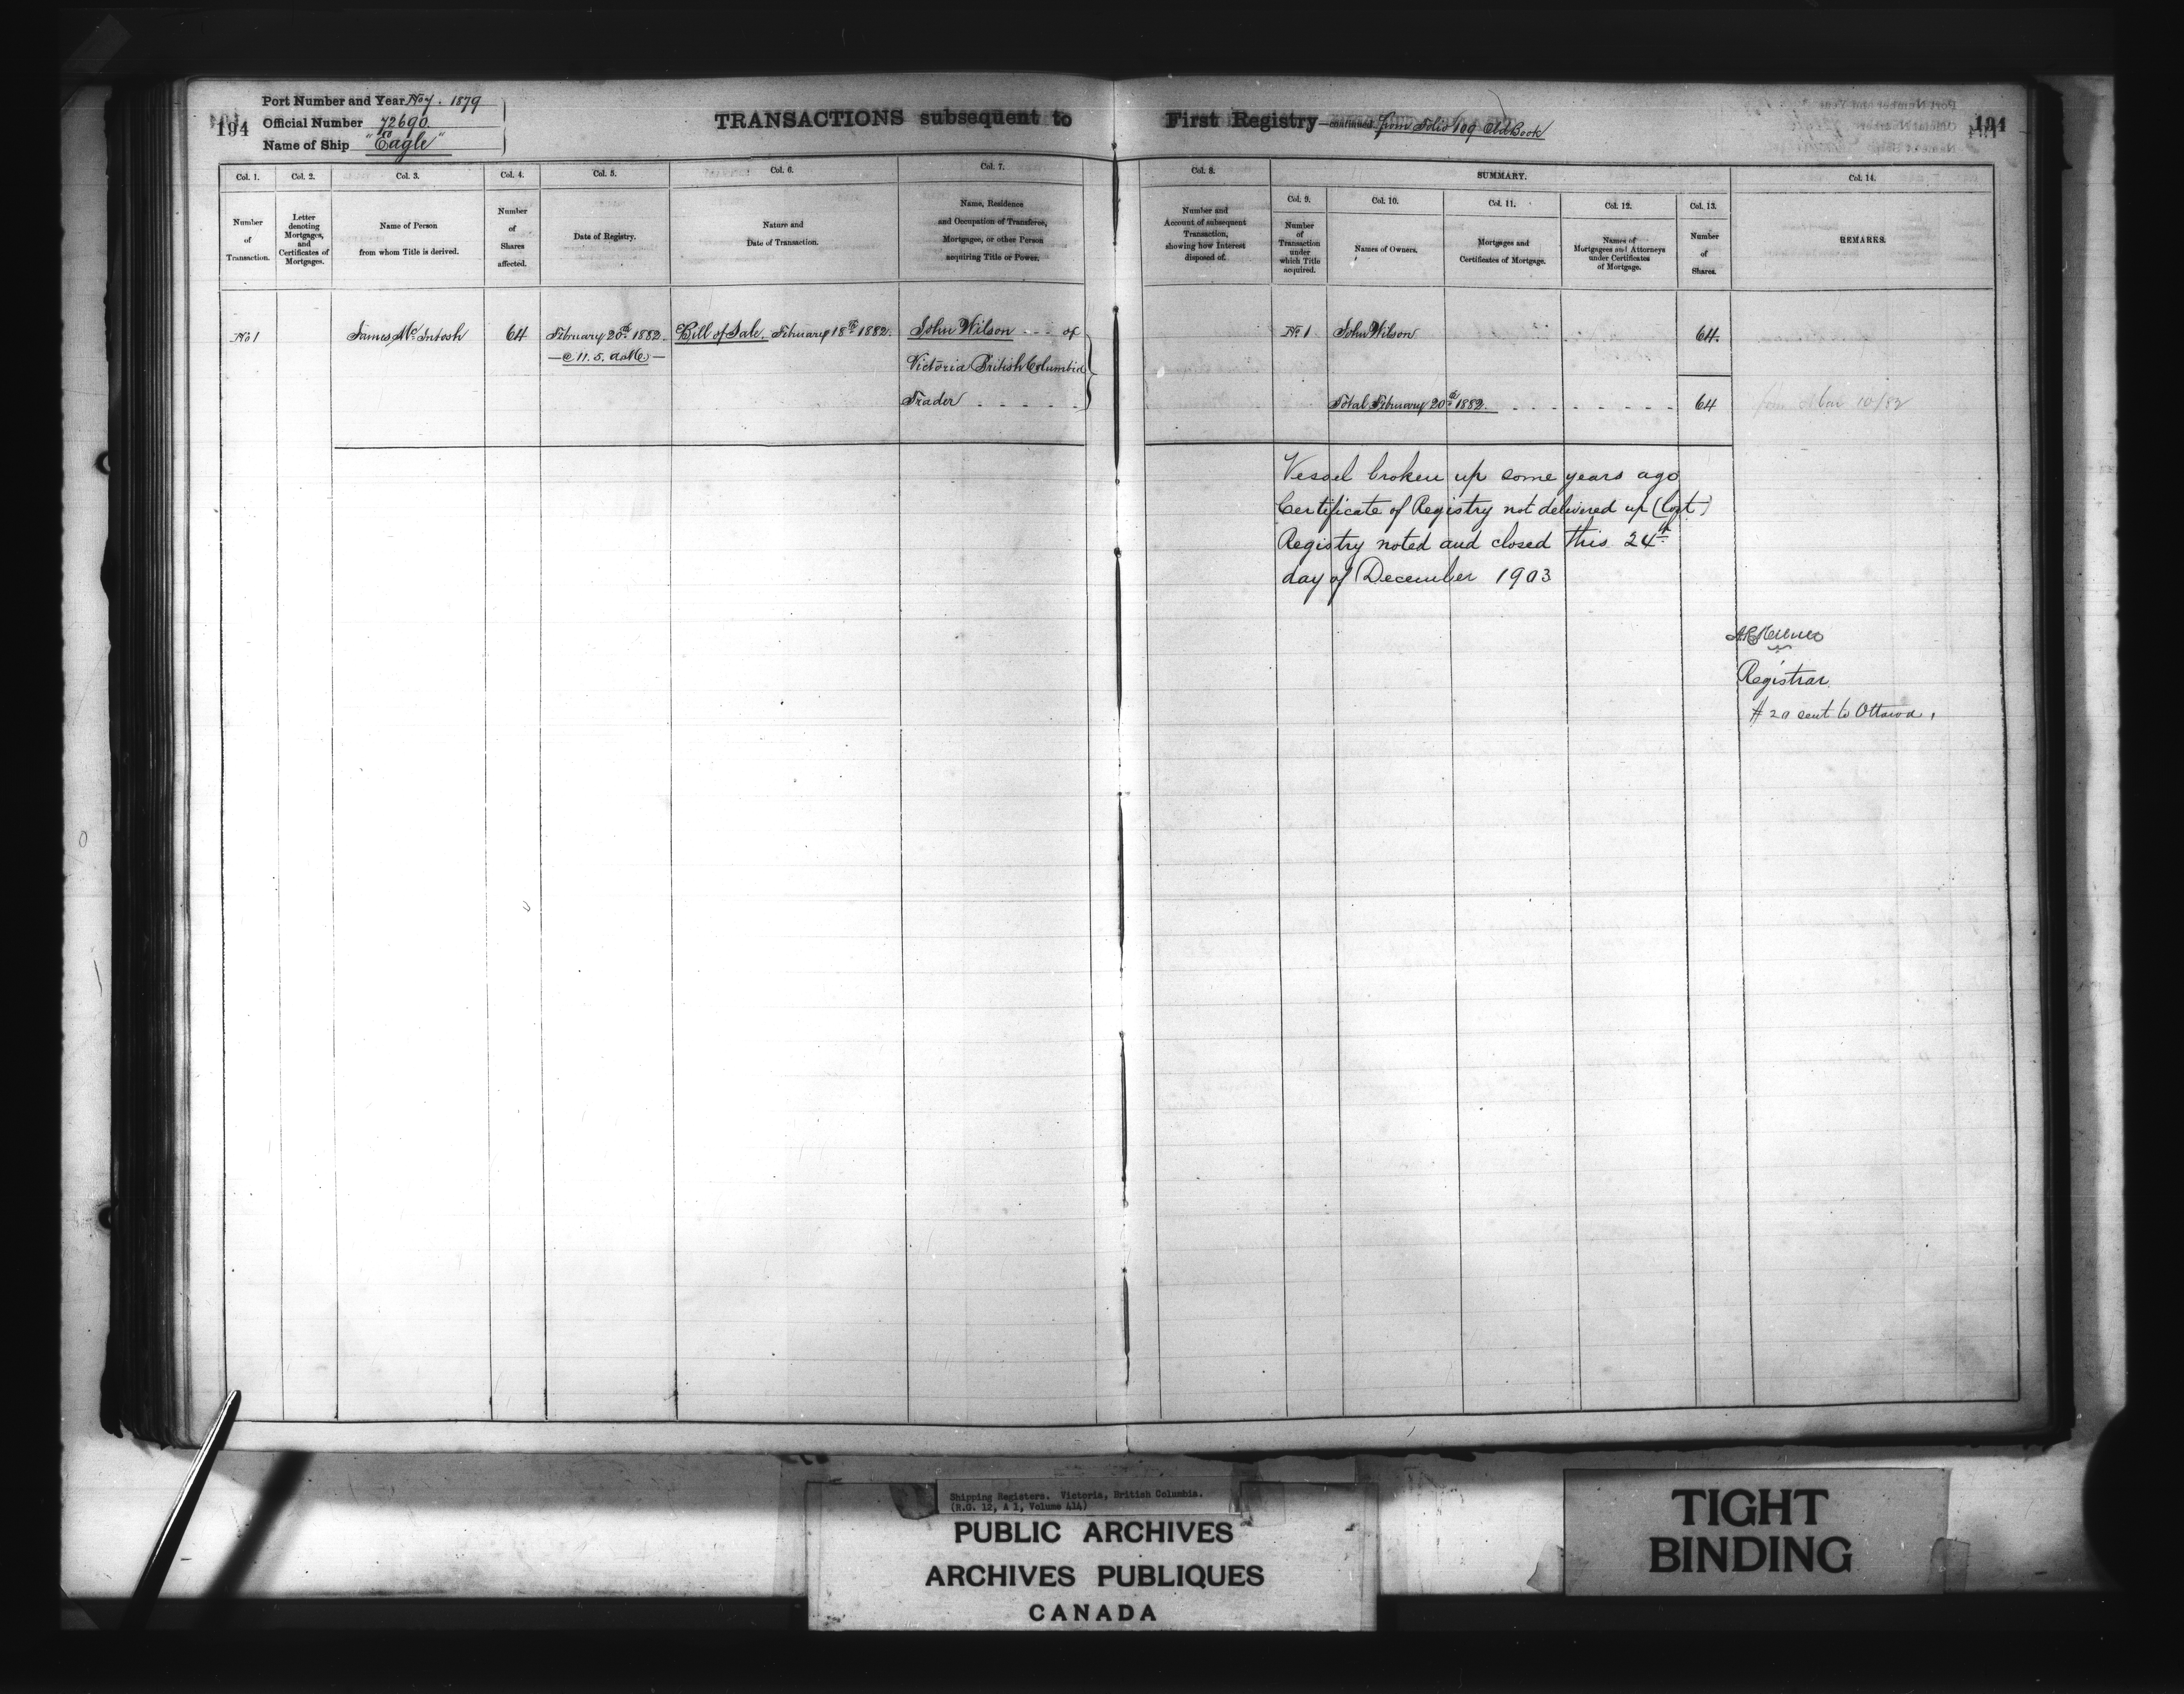 194
Port Number and Year No 7. 1879
Official Number 72690
Name of Ship "Eagle"
TRANSACTIONS subsequent to First Registry—continued from Folio 109 Old Book
194
Col. 1.
Number of Transaction.
Col. 2.
Letter denoting Mortgages, and Certificates of Mortgages.
Col. 3.
Name of Person from whom Title is derived.
Col. 4.
Number of Shares affected.
Col. 5.
Date of Registry.
Col. 6.
Nature and Date of Transaction.
Col. 7.
Name, Residence and Occupation of Transferee, Mortgagee, or other Person acquiring Title or Power.
Col. 8.
Number and Account of subsequent Transaction, showing how Interest disposed of.
SUMMARY.
Col. 9.
Number of Transaction under which Title acquired.
Col. 10.
Names of Owners.
Col. 11.
Mortgages and Certificates of Mortgage.
Col. 12.
Names of Mortgagees and Attorneys under Certificates of Mortgage.
Col. 13.
Number of Shares.
Col. 14.
REMARKS.
No 1 James McIntosh 64 February 20th 1882. Bill of Sale. February 18th 1882. John Wilson of
— @ 11.5. a.M. —
Victoria British Columbia
Trader
No 1 John Wilson 64.
Total February 20th 1882. 64
Mar 10/82
Vessel broken up some years ago
Certificate of Registry not delivered up (lost)
Registry noted and closed this 24th
day of December 1903
Registrar
# 20 sent to Ottawa.
Shipping Registers. Victoria, British Columbia.
(R.G. 12, A 1, Volume 414)
PUBLIC ARCHIVES
ARCHIVES PUBLIQUES
CANADA
TIGHT
BINDING